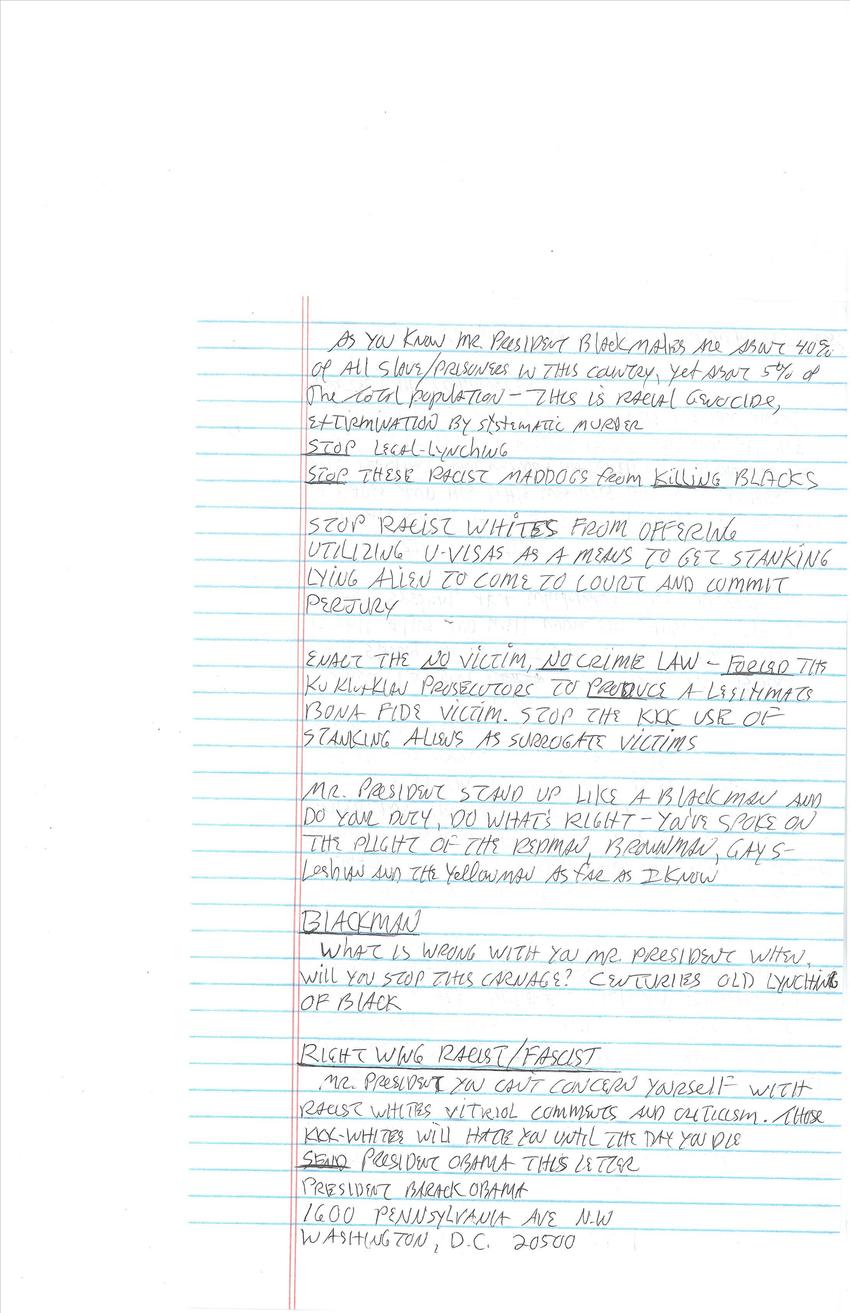 As you know Mr. President Black males are about 40%
of all slave/prisoners in this country, yet about 5% of
the total population - This is racial genocide,
extirmination by systematic murder
STOP LEGAL-LYNCHING
STOP THESE RACIST MADDOGS from KILLING BLACKS
STOP RACIST WHITES FROM OFFERING
UTILIZING U-VISAS AS A MEANS TO GET STANKING
LYING ALIEN TO COME TO COURT AND COMMIT
PERJURY
ENACT THE NO VICTIM, NO CRIME LAW - FORCED THE
KU KLUX KLAN PROSECUTORS TO PRODUCE A LEGITIMATE
BONA FIDE VICTIM. STOP THE KKK USE OF
STANKING ALIENS AS SURROGATE VICTIMS
MR. PRESIDENT STAND UP LIKE A BLACKMAN AND
DO YOUR DUTY, DO WHAT'S RIGHT - YOU'VE SPOKE ON
THE PLIGHT OF THE REDMAN, BROWNMAN, GAYS-
Lesbian AND THE YellowMAN AS FAR AS I KNOW
BLACKMAN
WHAT IS WRONG WITH YOU MR. PRESIDENT WHEN,
will YOU STOP THIS CARNAGE? CENTURIES OLD LYNCHING
OF BLACK
RIGHT WING RACIST/FASCIST
MR. PRESIDENT YOU CAN'T CONCERN YOURSELF WITH
RACIST WHITES VITRIOL COMMENTS AND CRITICISM. THOSE
KKK-WHITES WILL HATE YOU UNTIL THE DAY YOU DIE
SEND PRESIDENT OBAMA THIS LETTER
PRESIDENT BARACK OBAMA
1600 PENNSYLVANIA AVE N.W
WASHINGTON, D.C. 20500